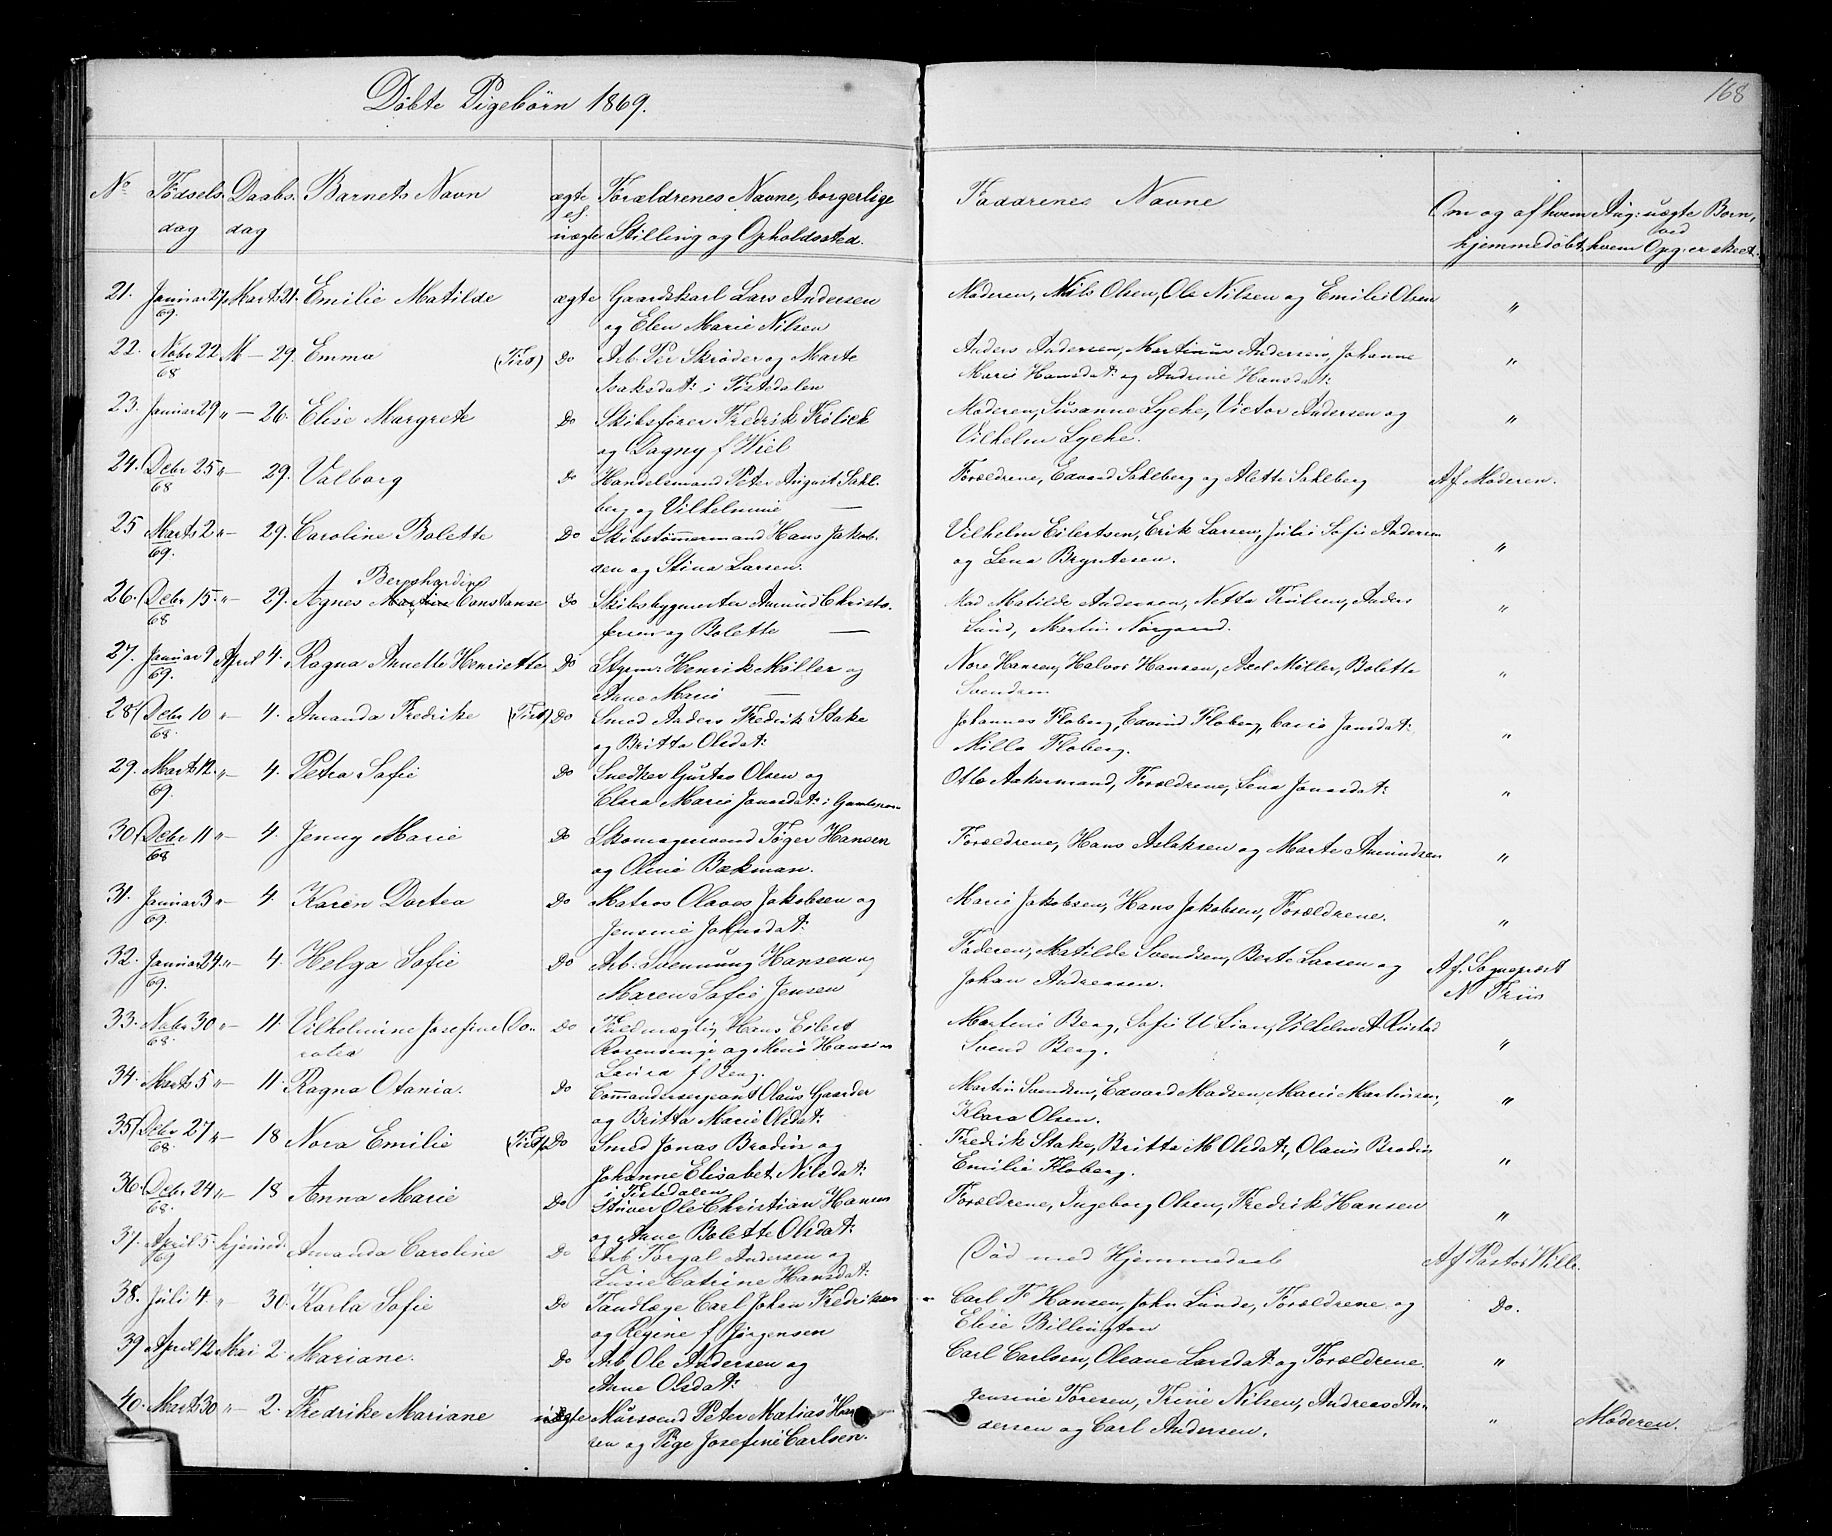 168
Döbte Pigebörn 1869.
No Födsels Daabs Barnets Navn ægte Forældrenes Navne, borgerlige Faddrenes Navne Om og af hvem Ang: uægte Börn,
dag dag el. uægte Stilling og Opholdssted. hjemmedöbt ved hvem Opg: er skeet.
21. Januar 27 Marts 21. Emilie Matilde ægte Gaardskarl Lars Andersen Moderen, Nils Olsen, Ole Nilsen og Emilie Olsen "
69. og Elen Marie Nilsen
22. Nobr 22 M — 29. Emma (Tist) Do Arb. Per Skröder og Marte Anders Andersen, Martinus Andersen, Johanne "
68 Isaksdat: i Tistedalen Marie Hansdat: og Andrine Hansdat:
23. Januar 29 " — 26. Elise Margrete Do Skibsförer Fredrik Frölich Moderen, Susanne Lyche, Victor Andersen og "
og Dagny f Wiel Vilhelm Lyche.
24. Debr 25 " — 29. Valborg Do Handelsmand Peter August Sahl- Forældrene, Edvard Sahlberg og Alette Sahlberg Af Moderen.
68 berg og Vilhelmine —
25 Marts 2 " — 29. Caroline Bolette Do Skibstömmermand Hans Jakob- Vilhelm Eilertsen, Erik Larsen, Julie Sofie Andersen "
69. sen og Stina Larsen. og Lena Bryntesen.
Bernhardine
26. Debr 15. " — 29. Agnes Constanse Do Skibsbygmester Amund Christo- Mad Matilde Andersen, Netta Trulsen, Anders "
68 fersen og Bolette — Lund, Martin Norgaard.
27. Januar 9 April 4. Ragna Annette Henriette Do Styrm: Henrik Möller og Nore Hansen, Halvor Hansen, Axel Möller, Bolette "
69. Anne Marie — Svendsen
28. Debr 10 " — 4. Amanda Fredrike (Tist) Do Smed Anders Fredrik Stake Johannes Floberg, Edvind Floberg, Carie Jansdat: "
68. og Britta Olsdat: Milla Floberg.
29. Marts 12. " — 4. Petra Sofie Do Snedker Gustav Olsen og Otto Aakermand, Forældrene, Lena Jonasdat: "
69. Clara Marie Jonasdat: i
30. Debr 11 " — 4. Jenny Marie Do Skomagersvend Töger Hansen Forældrene, Hans Aslaksen og Marte Amundsen "
68 og Oline Bækman.
31. Januar 3 " — 4. Karen Dortea Do Matros Olaves Jakobsen og Marie Jakobsen, Hans Jakobsen, Forældrene. "
69. Jensine Johnsdat:
32. Januar 24. " — 4. Helga Sofie Do Arb. Svennung Hansen og Faderen, Matilde Svendsen, Berte Larsen og Af. Sognepræst
69. Maren Sofie Jensen Johan Andreasen. N Friis
33. Nobr 30 " — 11. Vilhelmine Josefine Do- Do Fuldmægtig Hans Eilert Martine Berg, Sofie U Lian, Vilhelm A. Rustad "
68. rotea Rosensvinge og Hansine Svend Berg.
Laura f Berg.
34. Marts 5 " — 11. Ragna Otania. Do Commandersergeant Olaus Gaarder Martin Svendsen, Edvard Madsen, Marie Martinsen, "
og Britta Marie Olsdat: Klara Olsen.
35 Debr 27 " — 18 Nora Emilie (Tist) Do Smed Jonas Brodin og Fredrik Stake, Britta M Olsdat:, Olaus Brodin "
68. Johanne Elisabet Nilsdat: Emilie Floberg.
i Tistedalen
36. Debr 24 " — 18 Anna Marie Do Stuver Ole Christian Hansen Forældrene, Ingeborg Olsen, Fredrik Hansen "
68. og Anne Bolette Olsdat:
37. April 5. hjemmd. Amanda Caroline Do Arb Torgal Andersen og (Död med Hjemmedaab Af Pastor Wille.
69 Lusie Catrine Hansdat:
38. Juli 4. " 30. Karla Sofie Do Tandlæge Carl Johan Fredriksen Carl F Hansen, John Lunde, Forældrene og Do.
og Regine f Jörgensen Elise Billington
39 April 12 Mai 2. Mariane. Do Arb. Ole Andersen og Carl Carlsen, Oleane Larsdat: og Forældrene. "
Anne Olsdat:
40. Marts 30 " — 2. Fredrike Mariane uægte Mursvend Peter Matias Han- Jensine Toresen, Trine Nilsen, Andreas An- " Moderen.
sen og Pige Josefine Carlsen. dersen og Carl Andersen.